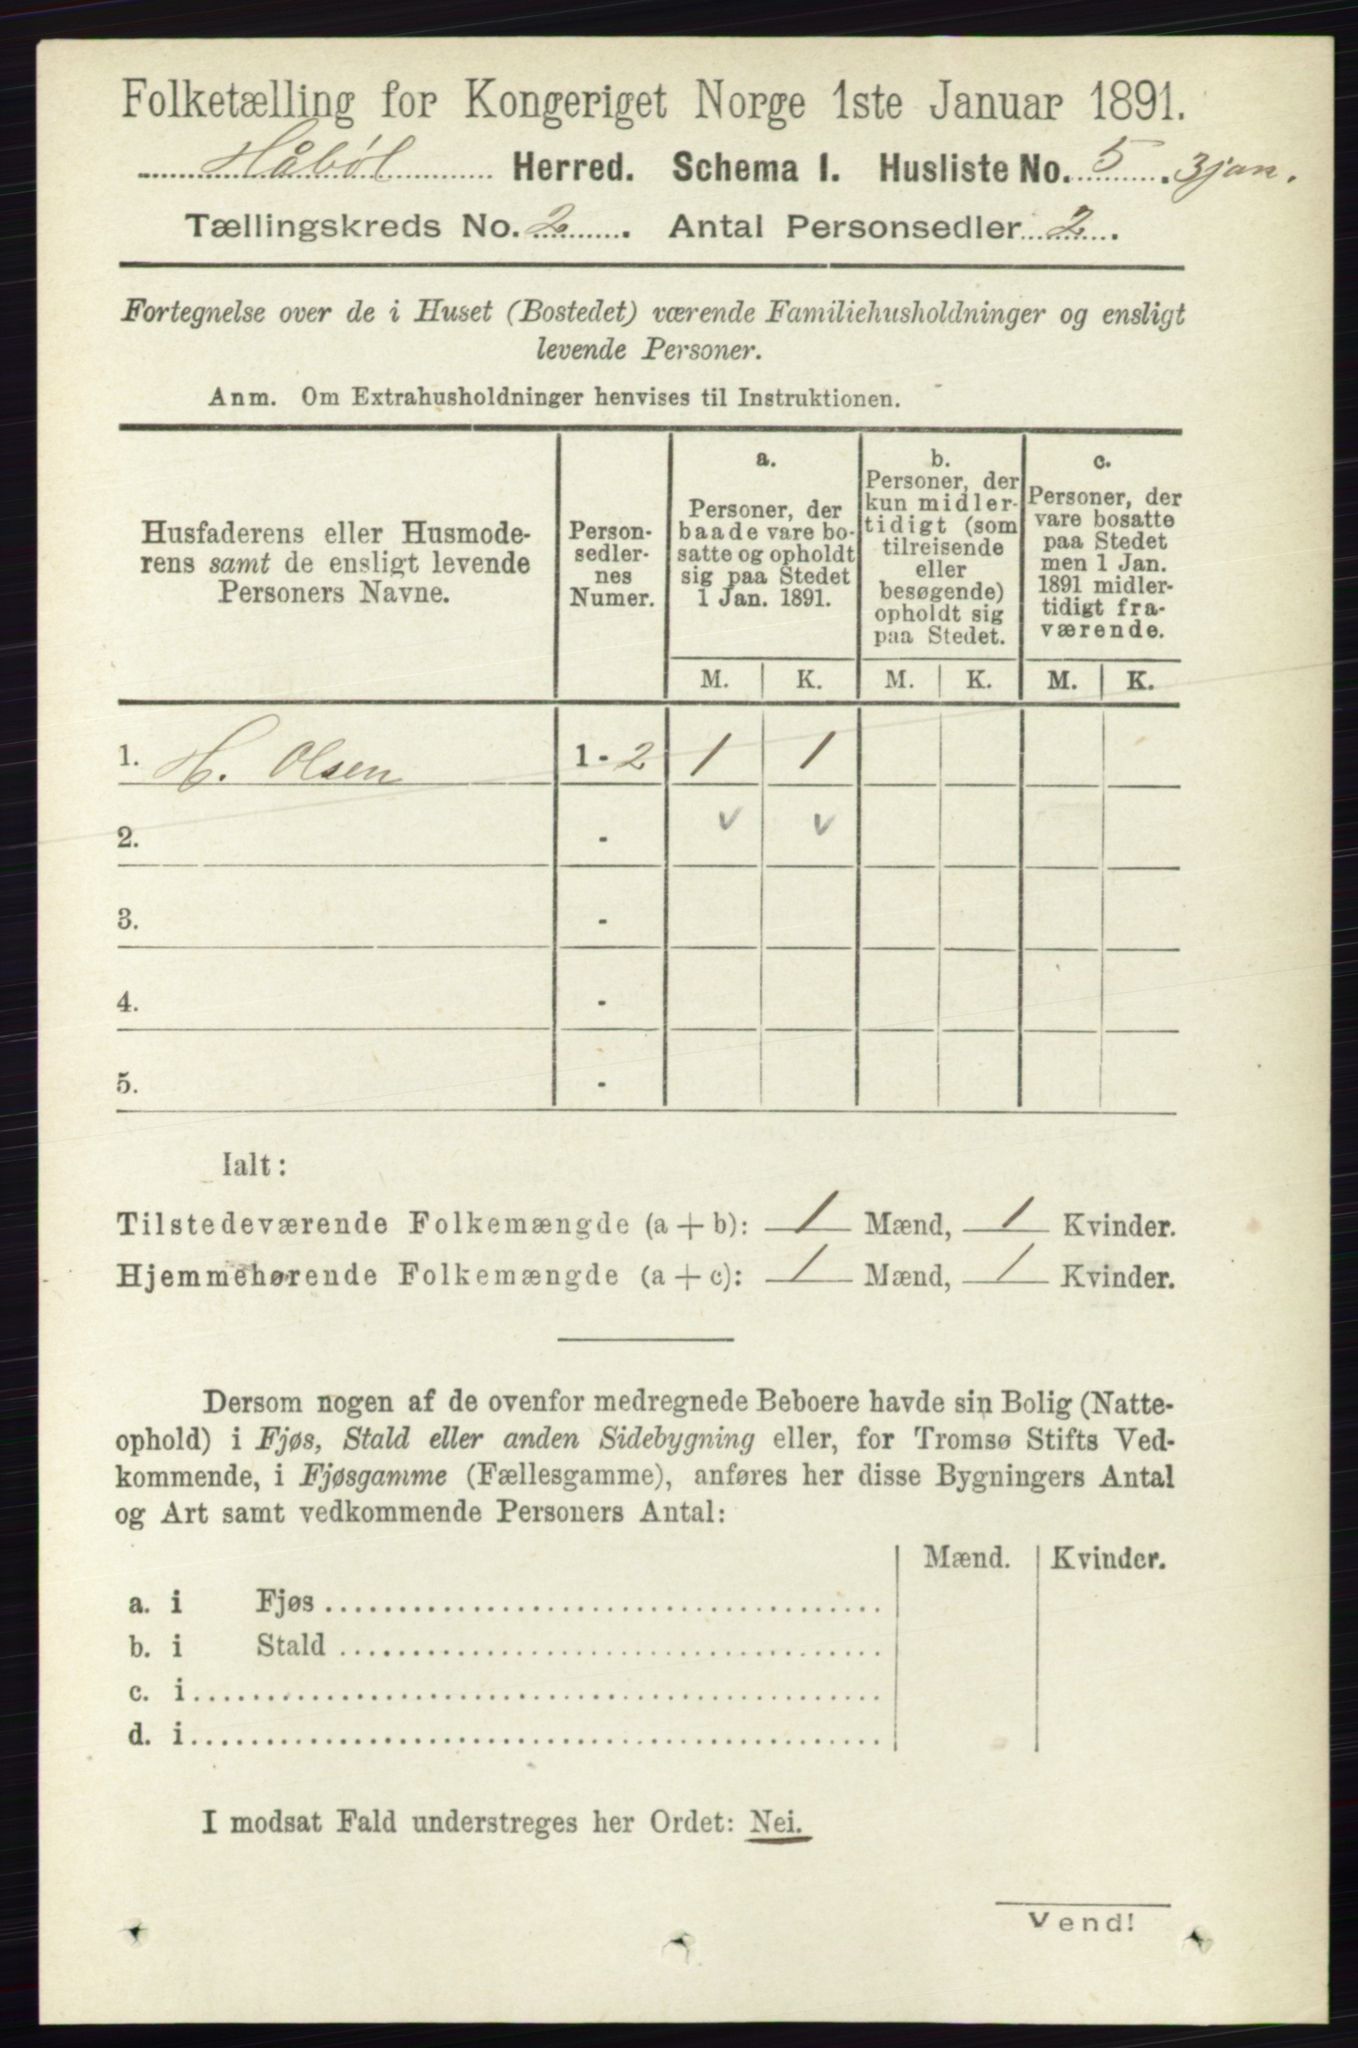 Folketælling for Kongeriget Norge 1ste Januar 1891.
Håbøl Herred. Schema I. Husliste No. 5. 3 jan.
Tællingskreds No. 2. Antal Personsedler 2.
Fortegnelse over de i Huset (Bostedet) værende Familiehusholdninger og ensligt
levende Personer.
Anm. Om Extrahusholdninger henvises til Instruktionen.
Husfaderens eller Husmode-
rens samt de ensligt levende
Personers Navne.
Person-
sedler-
nes
Numer.
a.
Personer, der
baade vare bo-
satte og opholdt
sig paa Stedet
1 Jan. 1891.
b.
Personer, der
kun midler-
tidigt (som
tilreisende
eller
besøgende)
opholdt sig
paa Stedet.
c.
Personer, der
vare bosatte
paa Stedet
men 1 Jan.
1891 midler-
tidigt fra-
værende.
M. K. M. K. M. K.
1. H. Olsen 1 - 2 1 1
2. - v v
3. -
4. -
5. -
Ialt:
Tilstedeværende Folkemængde (a + b): 1 Mænd, 1 Kvinder.
Hjemmehørende Folkemængde (a + c): 1 Mænd, 1 Kvinder.
Dersom nogen af de ovenfor medregnede Beboere havde sin Bolig (Natte-
ophold) i Fjøs, Stald eller anden Sidebygning eller, for Tromsø Stifts Ved-
kommende, i Fjøsgamme (Fællesgamme), anføres her disse Bygningers Antal
og Art samt vedkommende Personers Antal:
Mænd. Kvinder.
a. i Fjøs
b. i Stald
c. i
d. i
I modsat Fald understreges her Ordet: Nei.
Vend!